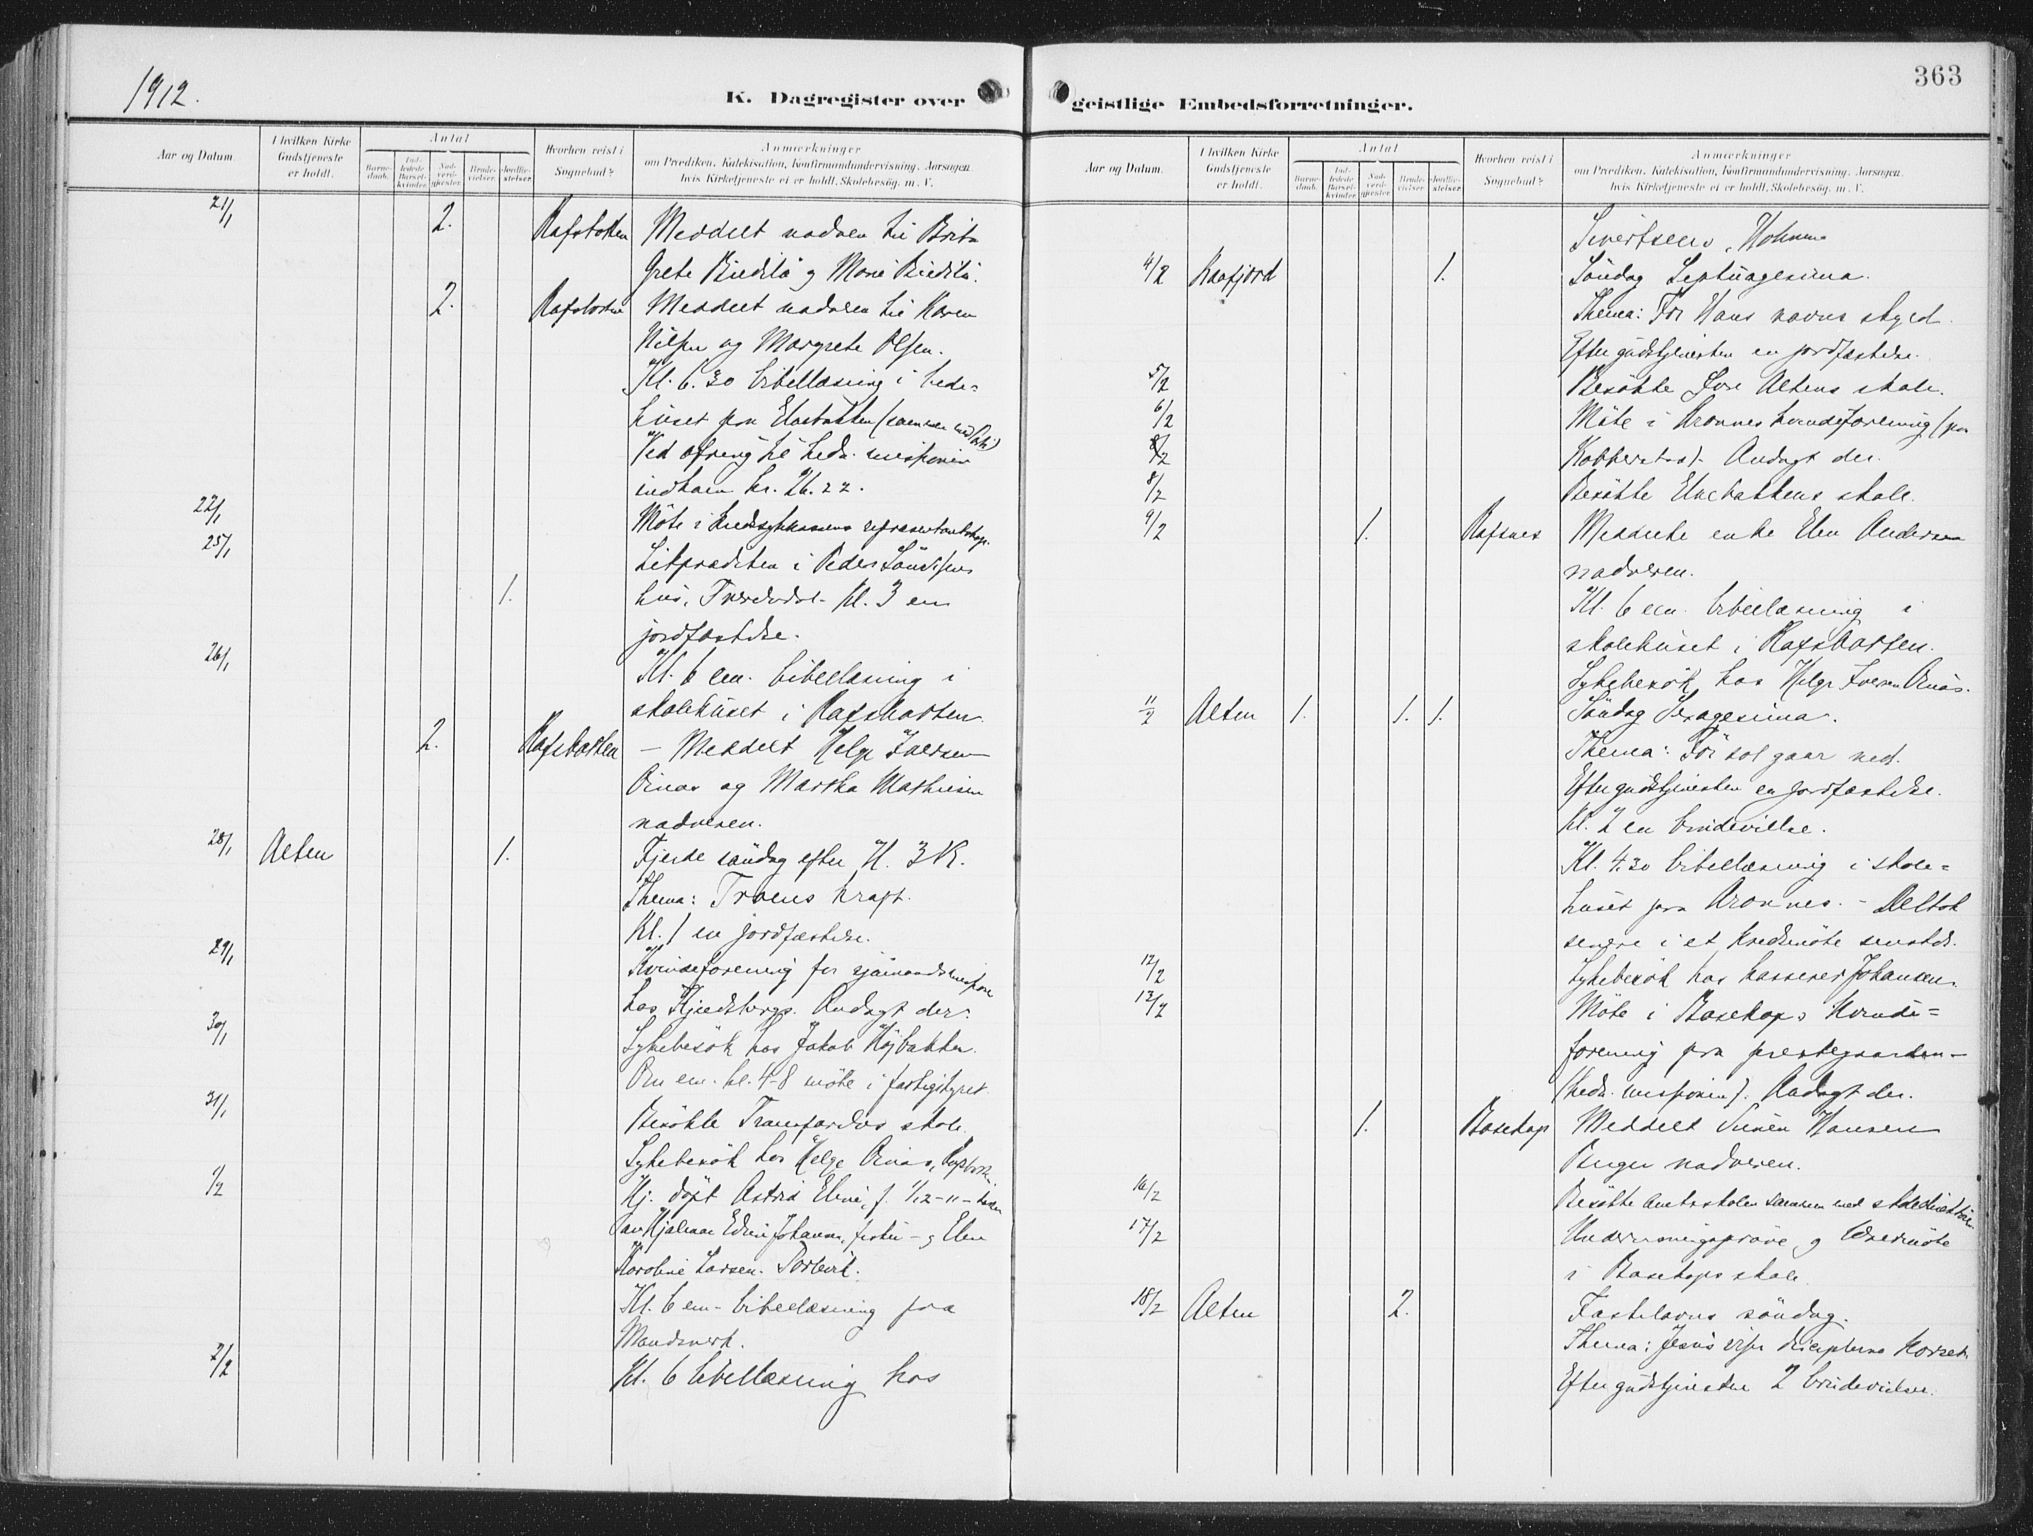 1912.
K. Dagregister over
Aar og Datum.
I hvilken Kirke Gudstjeneste er holdt.
Antal
Barnedaab.
Indledede Barselkvinder.
Nadverdgjester.
Brudevielser.
Jordfæstelser.
Hvorhen reist i Sognebud?
Anmærkninger
om Prædiken, Katekisation, Konfirmandundervisning, Aarsagen
hvis Kirketjeneste ei er holdt, Skolebesøg, m. V.
21/1 2. Rafsbotten Meddelt nadven til Brita
Grete og Marie
2. Rafsbotten Meddelt nadveren til Karen
Nilsen og Margrete Olsen.
Kl. 6.30 bibellæsning i bede=
huset paa Elvebakken (sammen med
Ved ofring til hedn. missionen
indkom kr. 26.22.
22/1 Möte i kredssykekassens representantskap.
25/1 Likprædiken i Peder
1. hus, Tverelvdal. Kl. 3 en
jordfæstelse.
26/1 Kl. 6 em. bibellæsning i
skolehuset i Rafsbotten
2. Rafsbotten — Meddelt Helge Iversen
Oinas og Martha Mathisen
nadveren.
28/1 Alten 1. Fjerde söndag efter H. 3 K.
Thema: Troens kraft.
Kl. 1 en jordfæstelse.
29/1 Kvindeforening for sjömandsmissionen
hos Andagt der.
30/1 Sykebesök hos Jakob Højbakken.
Om em. kl. 4-8 möte i fattigstyret.
31/1 Besökte Tranfardals skole.
Sykebesök hos Helge Oinas, Rafsbotn.
1/2 Hj. döpt Astrid Eline, f. 1/12-11
av Hjalmar Edvin Johansen, fisker - og Elen
Karoline Larsen.
Kl. 6 em- bibellæsning paa
Mandsverk.
2/2 Kl. 6 bibellæsning hos
363
geistlige Embedsforretninger.
Aar og Datum.
I hvilken Kirke Gudstjeneste er holdt.
Antal
Barnedaab.
Indledede Barselkvinder.
Nadverdgjester.
Brudevielser.
Jordfæstelser.
Hvorhen reist i Sognebud?
Anmærkninger
om Prædiken, Katekisation, Konfirmandundervisning, Aarsagen
hvis Kirketjeneste ei er holdt, Skolebesög, m. V.
Sivertsens,
4/2 Kaafjord 1. Söndag Septuagesima.
Thema: For Hans navns skyld.
Efter gudstjenesten en jordfæstelse.
5/2 Besökte Övre Altens skole.
6/2 Möte i Aronnes kvindeforening (paa
2 Andagt der.
8/2 Besökte Elvebakkens skole.
9/2 1. Rafsnes Meddelte enke Elen Andersen
nadveren.
Kl. 6 em. bibellæsning i
skolehuset i Rafsbotten.
Sykebesök hos Helge Iversen Oinas.
11/2 Alten 1. 1. 1. Söndag Sexagesima.
Thema: Før sol gaar ned.
Efter gudstjenesten en jordfæstelse.
Kl. 2 en brudevielse.
Kl. 4.30 bibellæsning i skole=
huset paa Aronnes. - Deltok
senere i et kredsmöte smstds.
12/2 Sykebesök hos kasserer Johansen.
13/2 Möte i Bosekops kvinde=
forening paa prestegaarden -
(hedn. missionen). Andagt der.
1. Bosekop Meddelt Hansen
nadveren.
16/2 Besökte amtsskolen sammen med skoledirektören.
17/2 Undervisningspröve og
i Bosekops skole.
18/2 Alten 2. Fastelavns söndag.
Thema: Jesus viser disciplene korset.
Efter gudstjenesten 2 brudevielser.